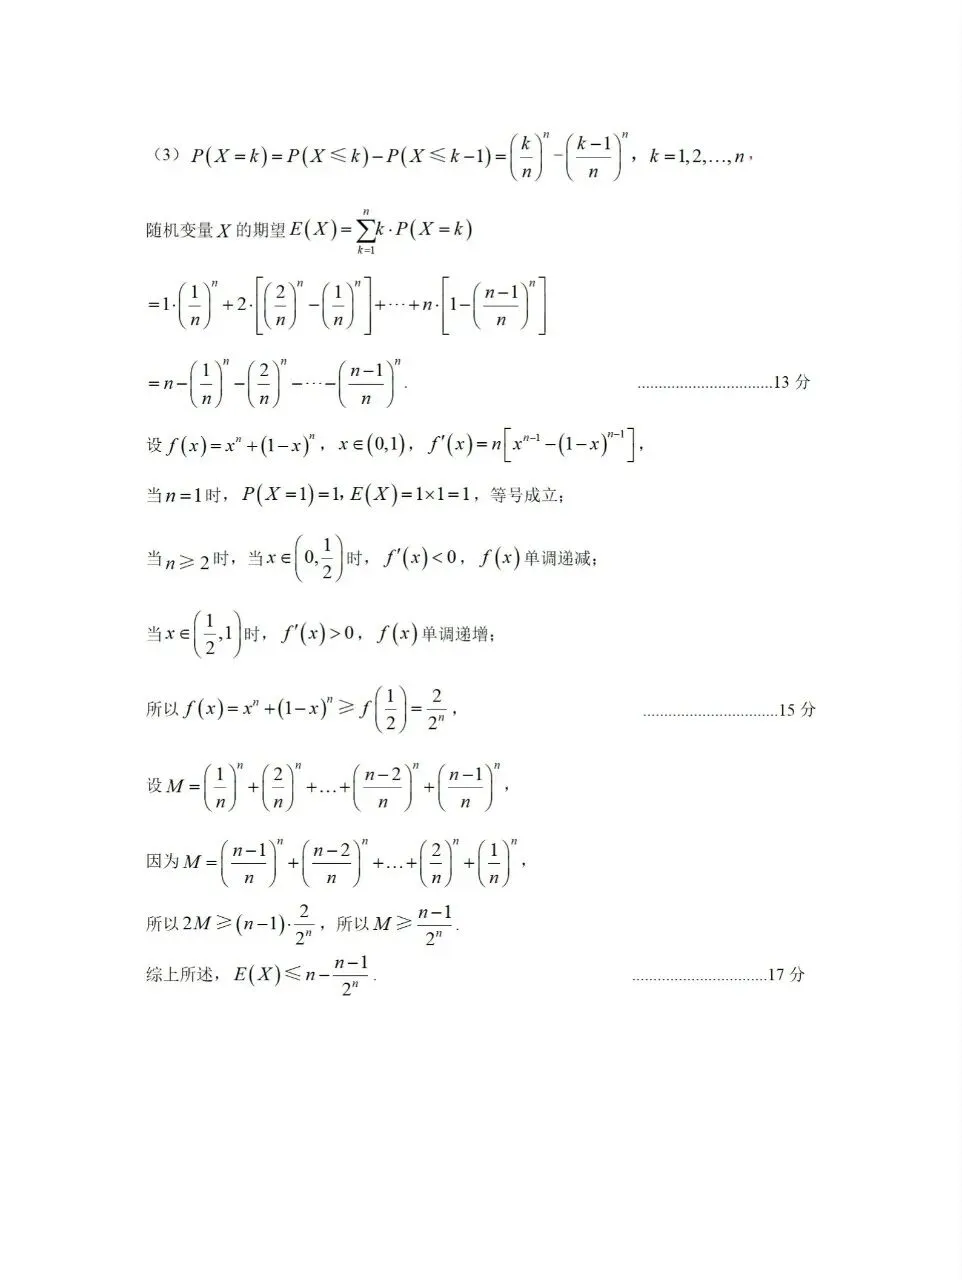 （3）P(X=k)=P(X≤k)-P(X≤k-1)=(k/n)^n-((k-1)/n)^n，k=1,2,…,n，
随机变量X的期望E(X)=∑_{k=1}^{n}k·P(X=k)
=1·(1/n)^n+2·[(2/n)^n-(1/n)^n]+⋯+n·[1-((n-1)/n)^n]
=n-(1/n)^n-(2/n)^n-⋯-((n-1)/n)^n. ................................13 分
设f(x)=x^n+(1-x)^n，x∈(0,1)，f′(x)=n[x^{n-1}-(1-x)^{n-1}]，
当n=1时，P(X=1)=1，E(X)=1×1=1，等号成立；
当n≥2时，当x∈(0,1/2)时，f′(x)<0，f(x)单调递减；
当x∈(1/2,1)时，f′(x)>0，f(x)单调递增；
所以f(x)=x^n+(1-x)^n≥f(1/2)=2/2^n， ................................15 分
设M=(1/n)^n+(2/n)^n+…+((n-2)/n)^n+((n-1)/n)^n，
因为M=((n-1)/n)^n+((n-2)/n)^n+…+(2/n)^n+(1/n)^n，
所以2M≥(n-1)·2/2^n，所以M≥(n-1)/2^n.
综上所述，E(X)≤n-(n-1)/2^n. ................................17 分